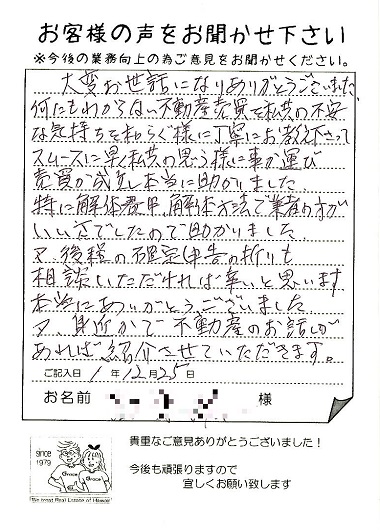 お客様の声をお聞かせ下さい
※今後の業務向上の為ご意見をお聞かせください。
大変お世話になりありがとうございました。
何にもわからない不動産売買を私共の不安
な気持ちを和らぐ様に丁寧にお教え下さって
スムースに早く私共の思う様に事が運び
売買が成立し本当に助かりました。
特に解体費用、解体方法で業者の方が
いい方でしたので助かりました。
又、後程の確定申告の折りも
相談いただければ幸いと思います
本当にありがとうございました。
又、身近かで不動産のお話しが
あれば紹介させていただきます。
ご記入日 1年12月25日
お名前 様
since
1979
Grace
Grace
貴重なご意見ありがとうございました！
今後も頑張りますので
宜しくお願い致します